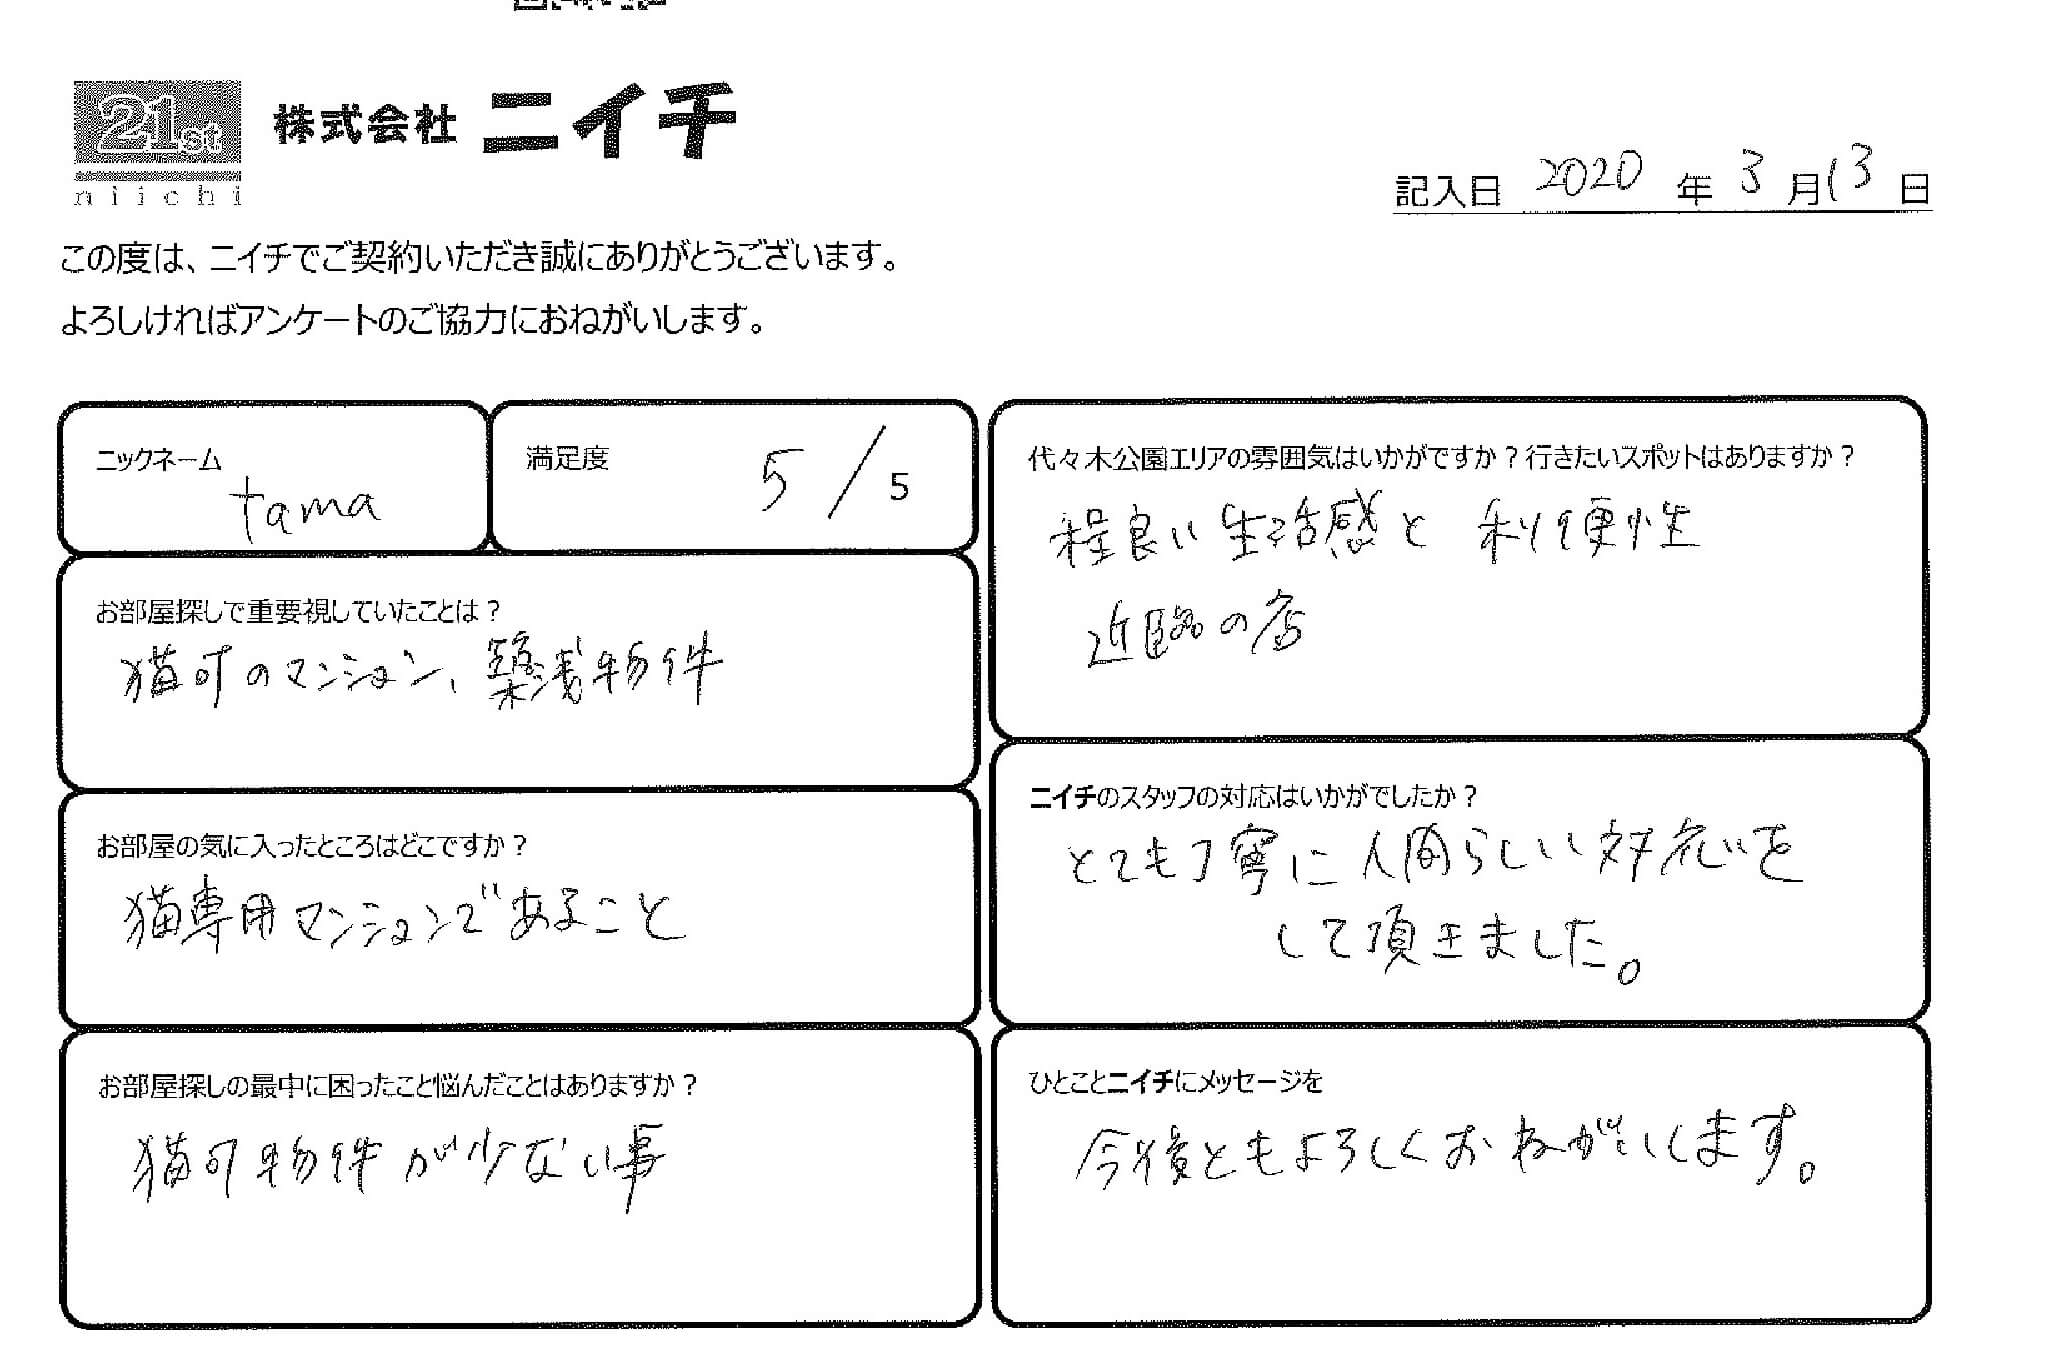 21st
niichi
株式会社 ニイチ
記入日 2020 年 3 月 13 日
この度は、ニイチでご契約いただき誠にありがとうございます。
よろしければアンケートのご協力におねがいします。
ニックネーム
tama
満足度
5/5
お部屋探しで重要視していたことは？
猫可のマンション、築浅物件
お部屋の気に入ったところはどこですか？
猫専用マンションであること
お部屋探しの最中に困ったこと悩んだことはありますか？
猫可物件が少ない事
代々木公園エリアの雰囲気はいかがですか？行きたいスポットはありますか？
程良い生活感と利便性
近臨の店
ニイチのスタッフの対応はいかがでしたか？
とても丁寧に人間らしい対応を
して頂きました。
ひとことニイチにメッセージを
今後ともよろしくおねがいします。